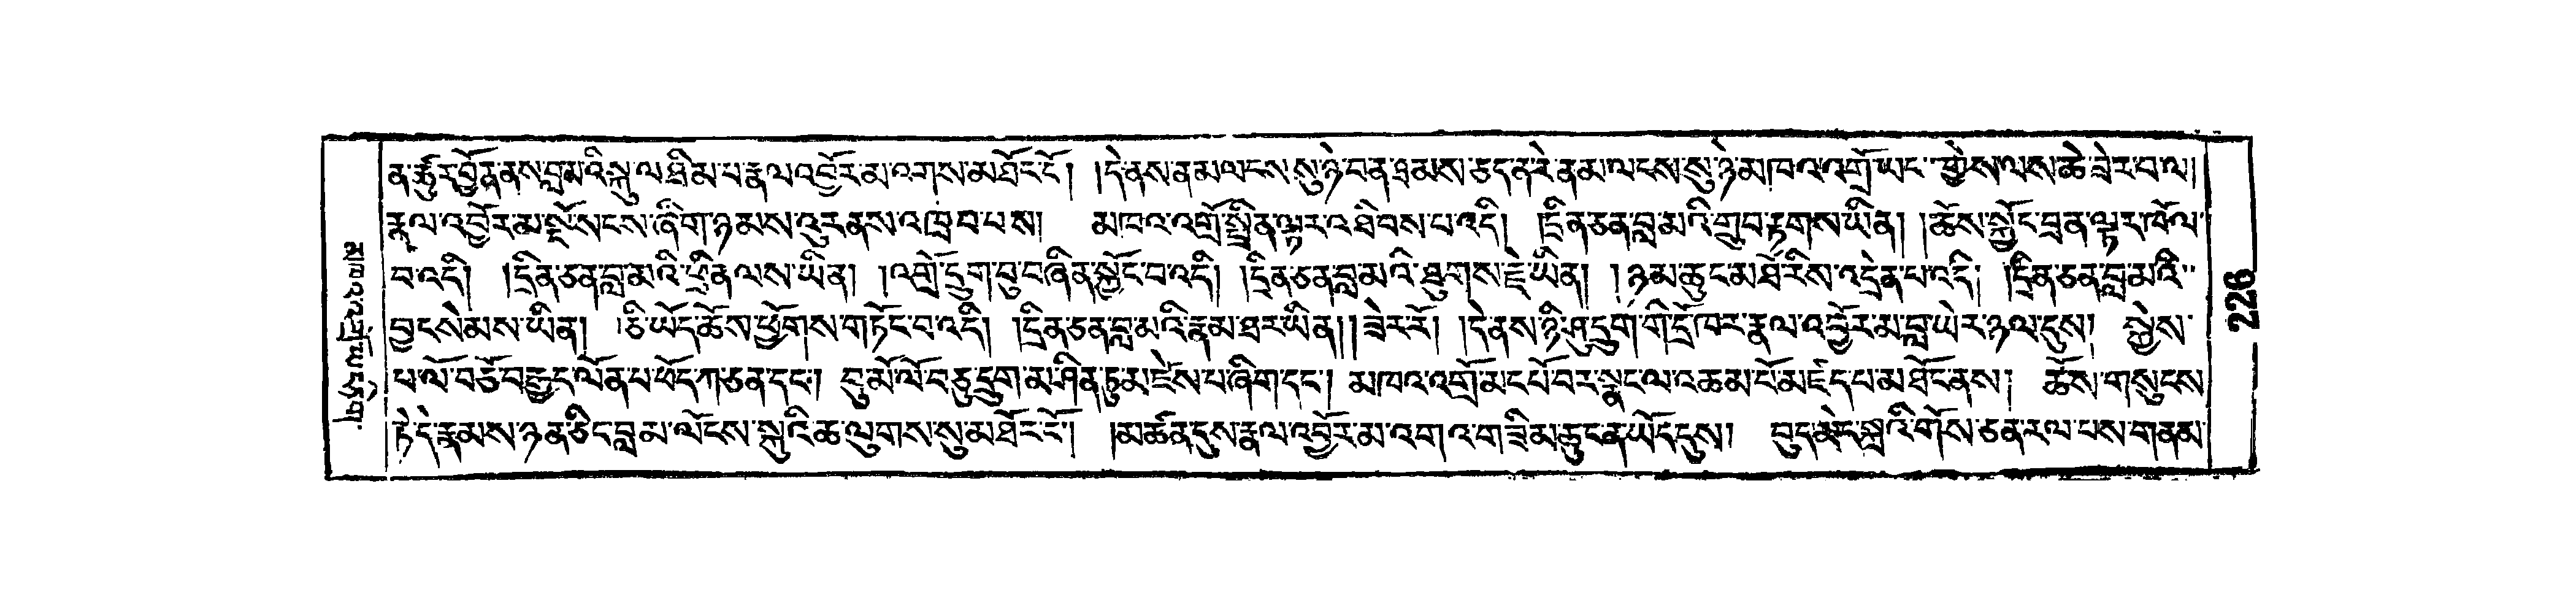 ན་ཚུར་བྱོན་ནས་བླ་མའི་སྐུ་ལ་ཐིམ་པ་རྣལ་འབྱོར་མ་འགས་མཐོང་ངོ༌། །དེ་ནས་ནམ་ལངས་སུ་ཉེ་བ་ན་ཐམས་ཅད་ན་རེ་ནམ་ལངས་སུ་ཉེ་མཁའ་འགྲོ་ཡང་གྱེས་ལས་ཆེ་ཟེར་བ་ལ།
རྣལ་འབྱོར་མ་སྔོ་སངས་ཞིག་ཉམས་འུར་ནས་འཁྲབ་པས། མཁའ་འགྲོ་སྤྲིན་ལྟར་འཐིབས་པ་འདི། །དྲིན་ཅན་བླ་མའི་གྲུབ་རྟགས་ཡིན། །ཆོས་སྐྱོང་བྲན་ལྟར་ཁོལ་
བ་འདི། །དྲིན་ཅན་བླ་མའི་ཕྲིན་ལས་ཡིན། །འགྲོ་དྲུག་བུ་བཞིན་སྐྱོང་བ་འདི། །དྲིན་ཅན་བླ་མའི་ཐུགས་རྗེ་ཡིན། །ཉམ་ཆུང་མཐོ་རིས་འདྲེན་པ་འདི། །དྲིན་ཅན་བླ་མའི་
བྱང་སེམས་ཡིན། ཅི་ཡོད་ཆོས་ཕྱོགས་གཏོང་བ་འདི། །དྲིན་ཅན་བླ་མའི་རྣམ་ཐར་ཡིན། །ཟེར་རོ། །དེ་ནས་ཉི་ཤུ་དྲུག་གི་དྲོ་ཁར་རྣལ་འབྱོར་མ་བླ་ཡེར་ཉལ་དུས། སྐྱེས་
པ་ལོ་བཅོ་བརྒྱད་ལོན་པ་པོད་ཀ་ཅན་དང༌། བུ་མོ་ལོ་བཅུ་དྲུག་མ་ཤིན་ཏུ་མཛེས་པ་ཞིག་དང༌། མཁའ་འགྲོ་མང་པོ་བར་སྣང་ལ་འཆམ་པོ་མཛད་པ་མཐོང་ནས། ཆོས་གསུངས་
ཏེ་དེ་རྣམས་ཉན་ཅིང་བླ་མ་ལོངས་སྐུའི་ཆ་ལུགས་སུ་མཐོང་ངོ༌། །མཚན་དུས་རྣལ་འབྱོར་མ་འགའ་གཟིམ་ཆུང་ན་ཡོད་དུས། བུད་མེད་སྐྲའི་གོས་ཅན་རལ་པས་གནམ་